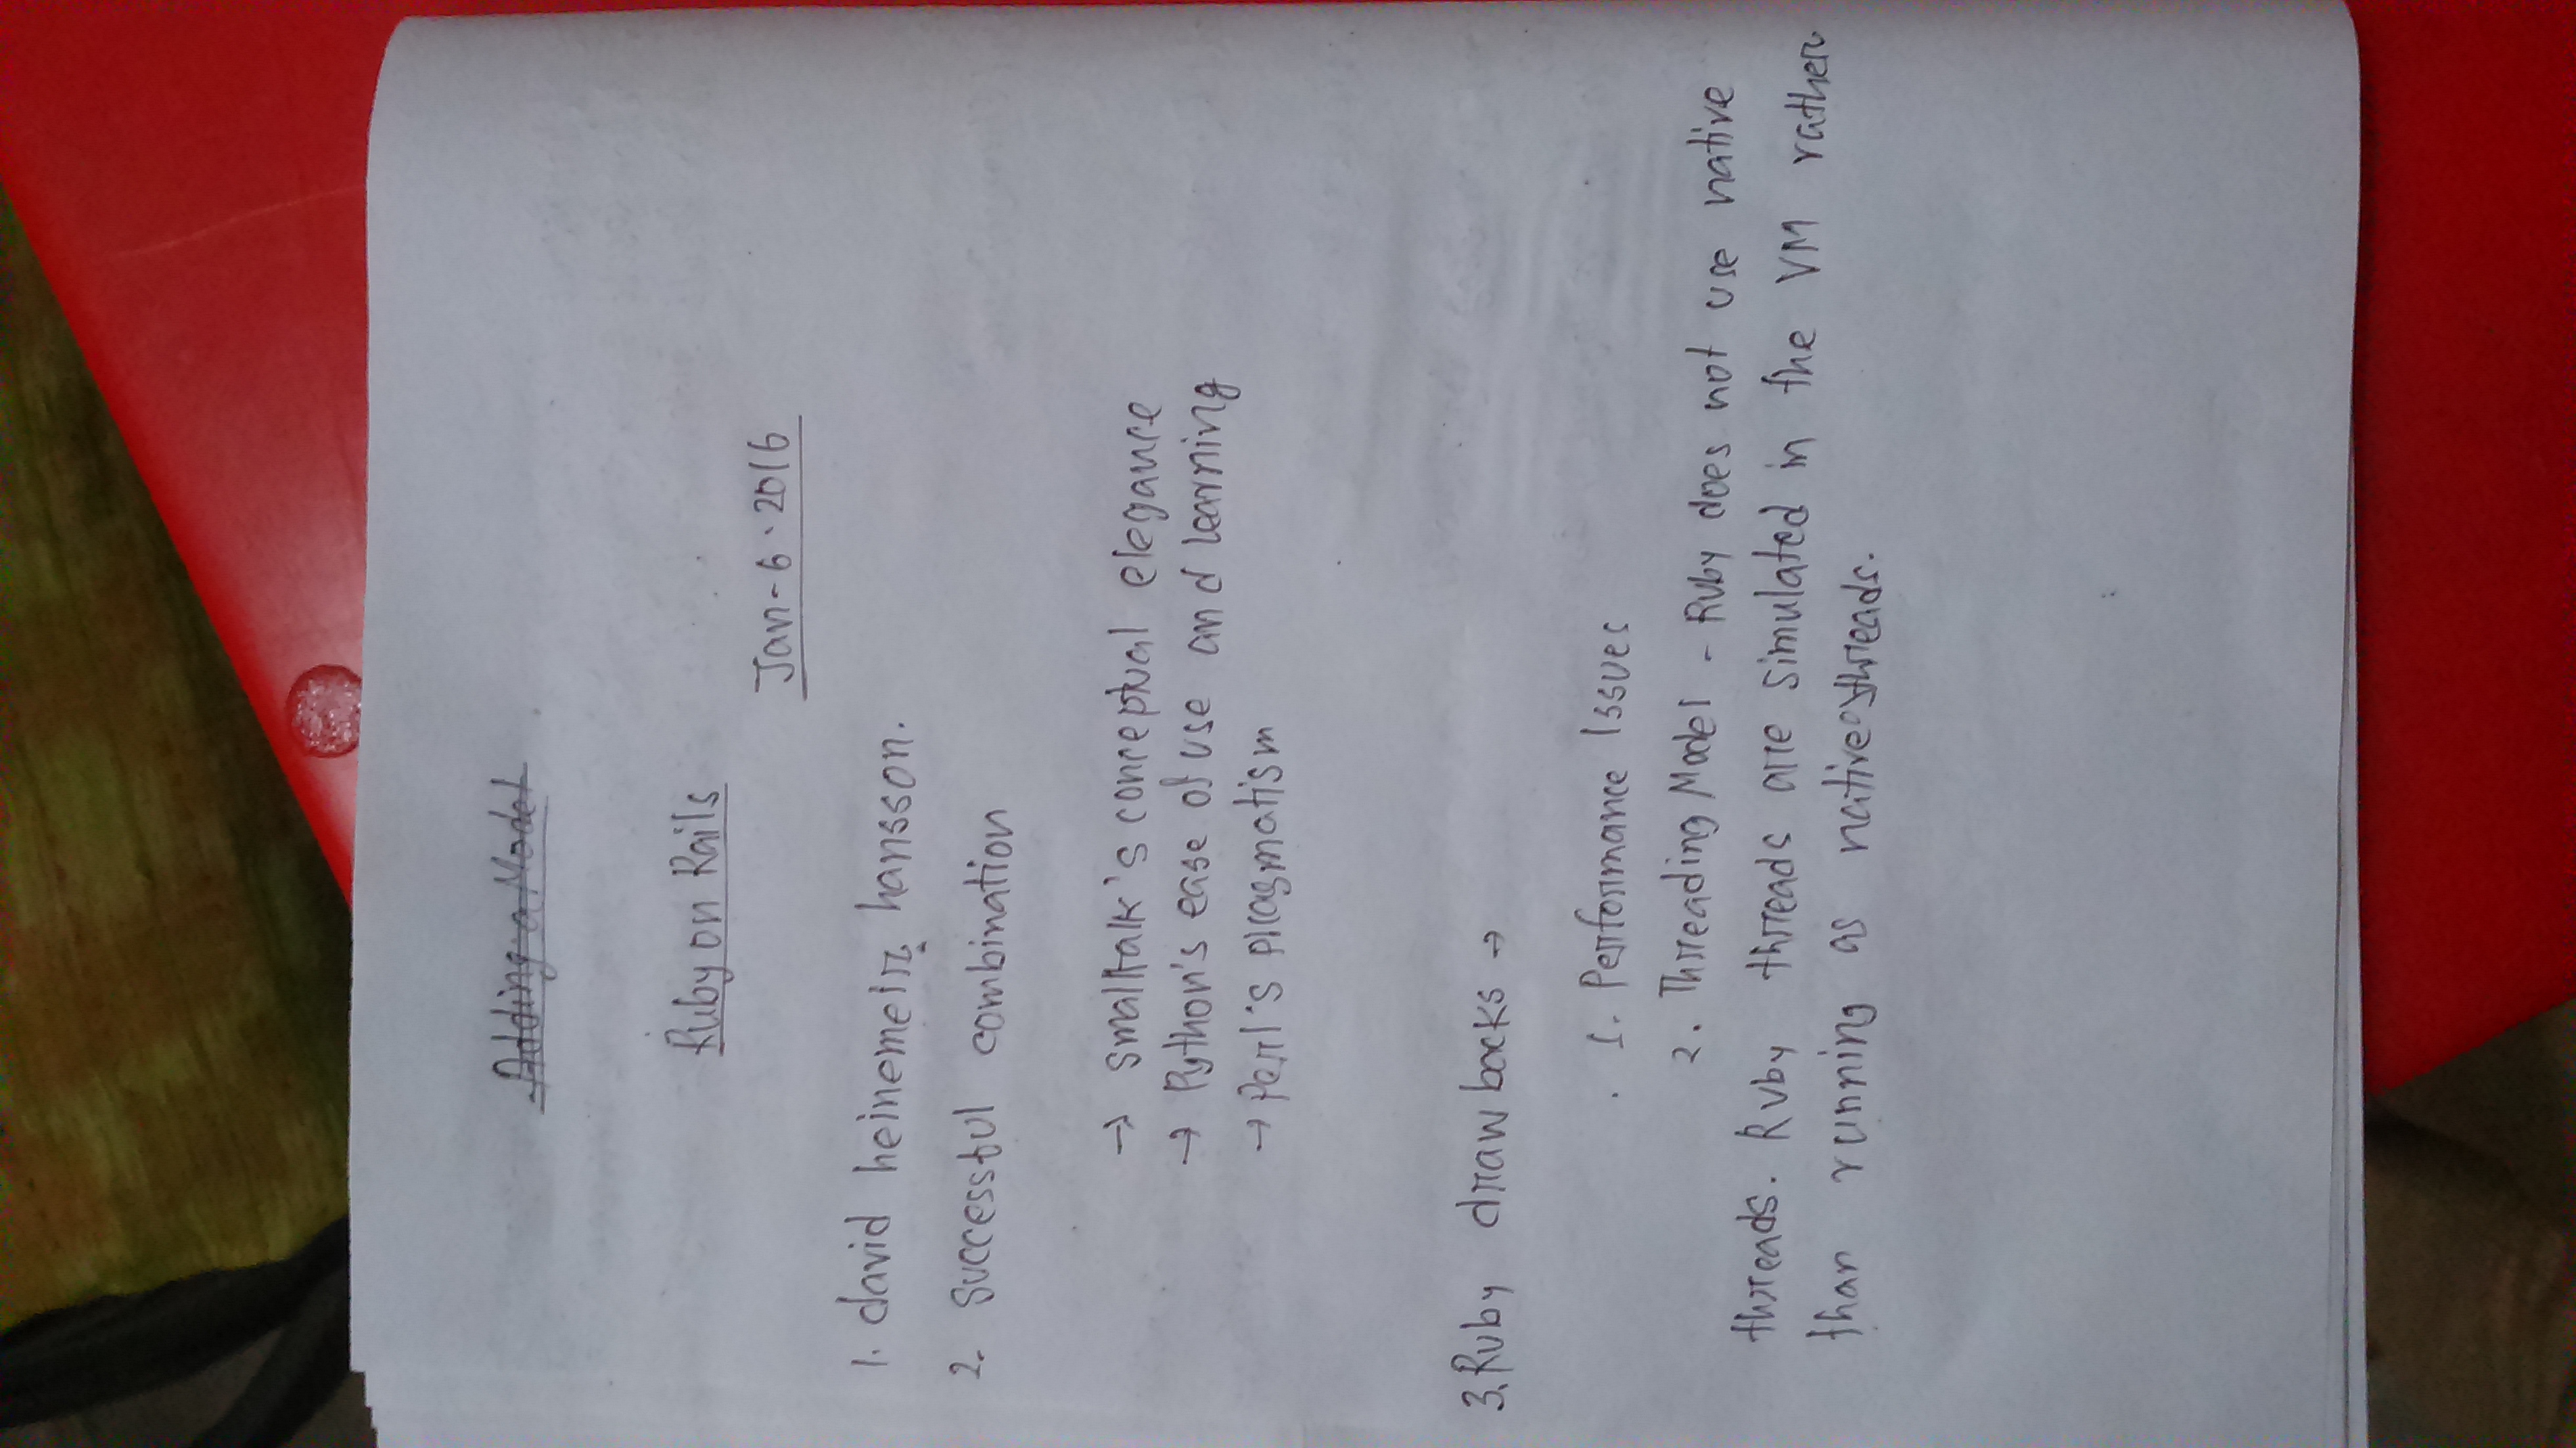 Adding a Model
Ruby on Rails
Jan-6.2016
1. david heinemeir hansson.
2. Successful combination
→ smalltalk's conceptual elegance
→ Python's ease of use and learning
→ Perl's pragmatism
3. Ruby drawbacks →
1. Performance Issues
2. Threading Model - Ruby does not use native
threads. Ruby threads are simulated in the VM rather
than running as native threads.